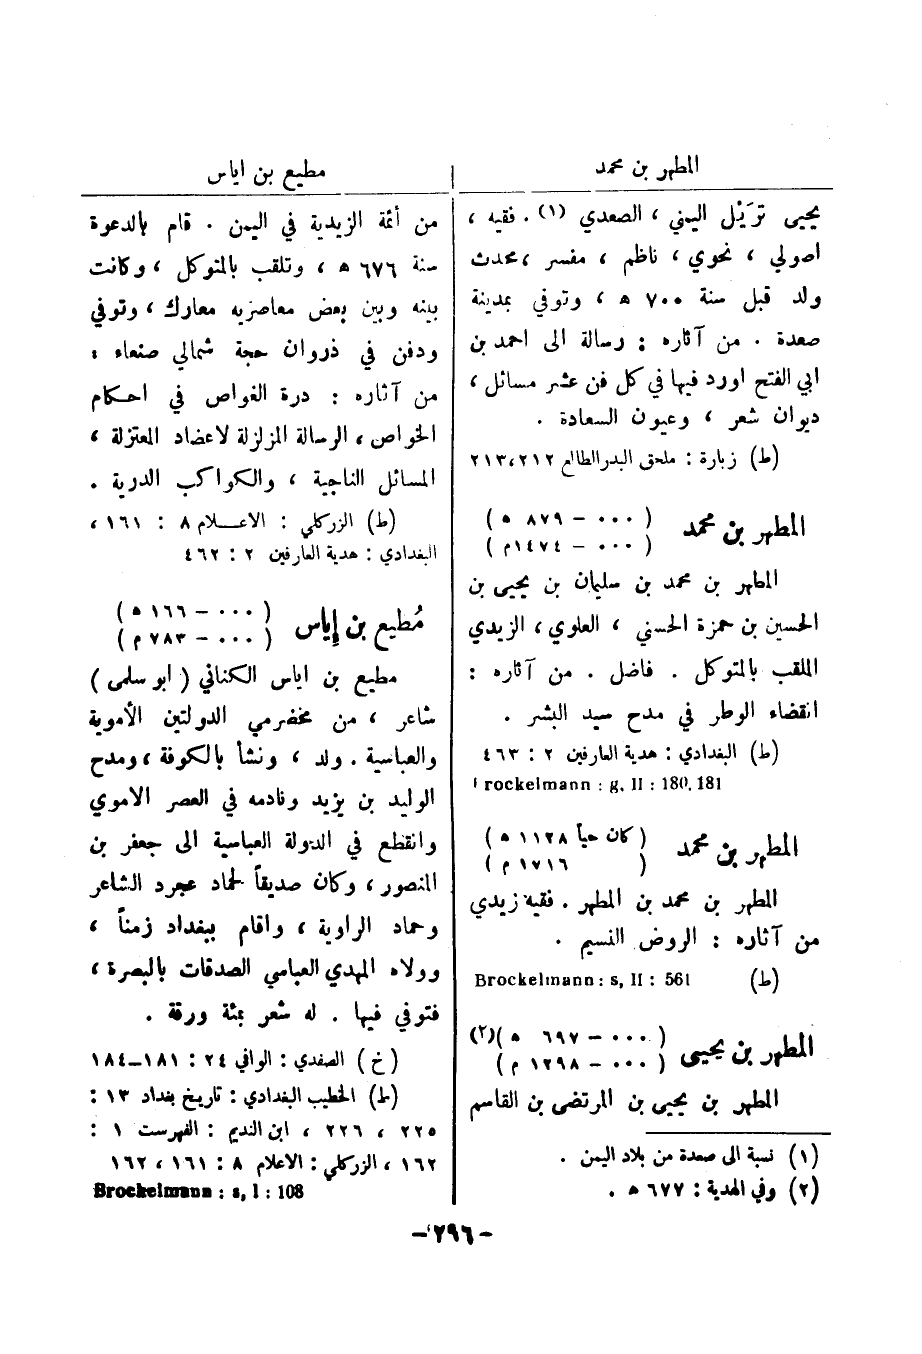 المطهر بن محمد
مطيع بن اياس
يحيى تزيل اليمني ، الصعدي (١) . فقيه ،
اصولي ، نحوي ، ناظم ، مفسر ، محدث
ولد قبل سنة ٧٠٠ ه ، وتوفي بمدينة
صعدة . من آثاره : رسالة الى احمد بن
ابي الفتح اورد فيها في كل فن عشر مسائل ،
ديوان شعر ، وعيون السعادة .
(ط) زبارة : ملحق البدر الطالع ٢١٢ ، ٢١٣
المطهر بن محمد ( ٠٠٠ – ٨٧٩ ه )
( ٠٠٠ – ١٤٧٤ م )
المطهر بن محمد بن سليمان بن يحيى بن
الحسين بن حمزة الحسني ، العلوي ، الزيدي
الملقب بالمتوكل . فاضل . من آثاره :
انقضاء الوطر في مدح سيد البشر .
(ط) البغدادي : هدية العارفين ٢ : ٤٦٣
rockelmann : g, II : 180, 181
المطهر بن محمد ( كان حياً ١١٢٨ ه )
( ١٧١٦ م )
المطهر بن محمد بن المطهر . فقيه زيدي
من آثاره : الروض النسيم .
(ط) Brockelmann : s, II : 561
المطهر بن يحيى ( ٠٠٠ – ٦٩٧ ه )(٢)
( ٠٠٠ – ١٢٩٨ م )
المطهر بن يحيى بن المرتضى بن القاسم
(١) نسبة الى صعدة من بلاد اليمن .
(٢) وفي الهدية : ٦٧٧ ه .
من أئمة الزيدية في اليمن . قام بالدعوة
سنة ٦٧٦ ه ، وتلقب بالمتوكل ، وكانت
بينه وبين بعض معاصريه معارك ، وتوفي
ودفن في ذروان حجة شمالي صنعاء :
من آثاره : درة الغواص في احكام
الخواص ، الرسالة المزلزلة لاعضاد المعتزلة ،
المسائل الناجية ، والكواكب الدرية .
(ط) الزركلي : الاعلام ٨ : ١٦١ ،
البغدادي : هدية العارفين ٢ : ٤٦٢
مُطيع بن إياس ( ٠٠٠ – ١٦٦ ه )
( ٠٠٠ – ٧٨٣ م )
مطيع بن اياس الكناني ( ابو سلمى )
شاعر ، من مخضرمي الدولتين الأموية
والعباسية . ولد ، ونشأ بالكوفة ، ومدح
الوليد بن يزيد ونادمه في العصر الاموي
وانقطع في الدولة العباسية الى جعفر بن
المنصور ، وكان صديقاً لحماد عجرد الشاعر
وحماد الراوية ، واقام ببغداد زمناً ،
وولاه المهدي العباسي الصدقات بالبصرة ،
فتوفي فيها . له شعر بمئة ورقة .
(خ) الصفدي : الوافي ٢٤ : ١٨١–١٨٤
(ط) الخطيب البغدادي : تاريخ بغداد ١٣ :
٢٢٥ ، ٢٢٦ ، ابن النديم : الفهرست ١ :
١٦٢ ، الزركلي : الاعلام ٨ : ١٦١ ، ١٦٢
Brockelmann : s, I : 108
– ٢٩٦ –